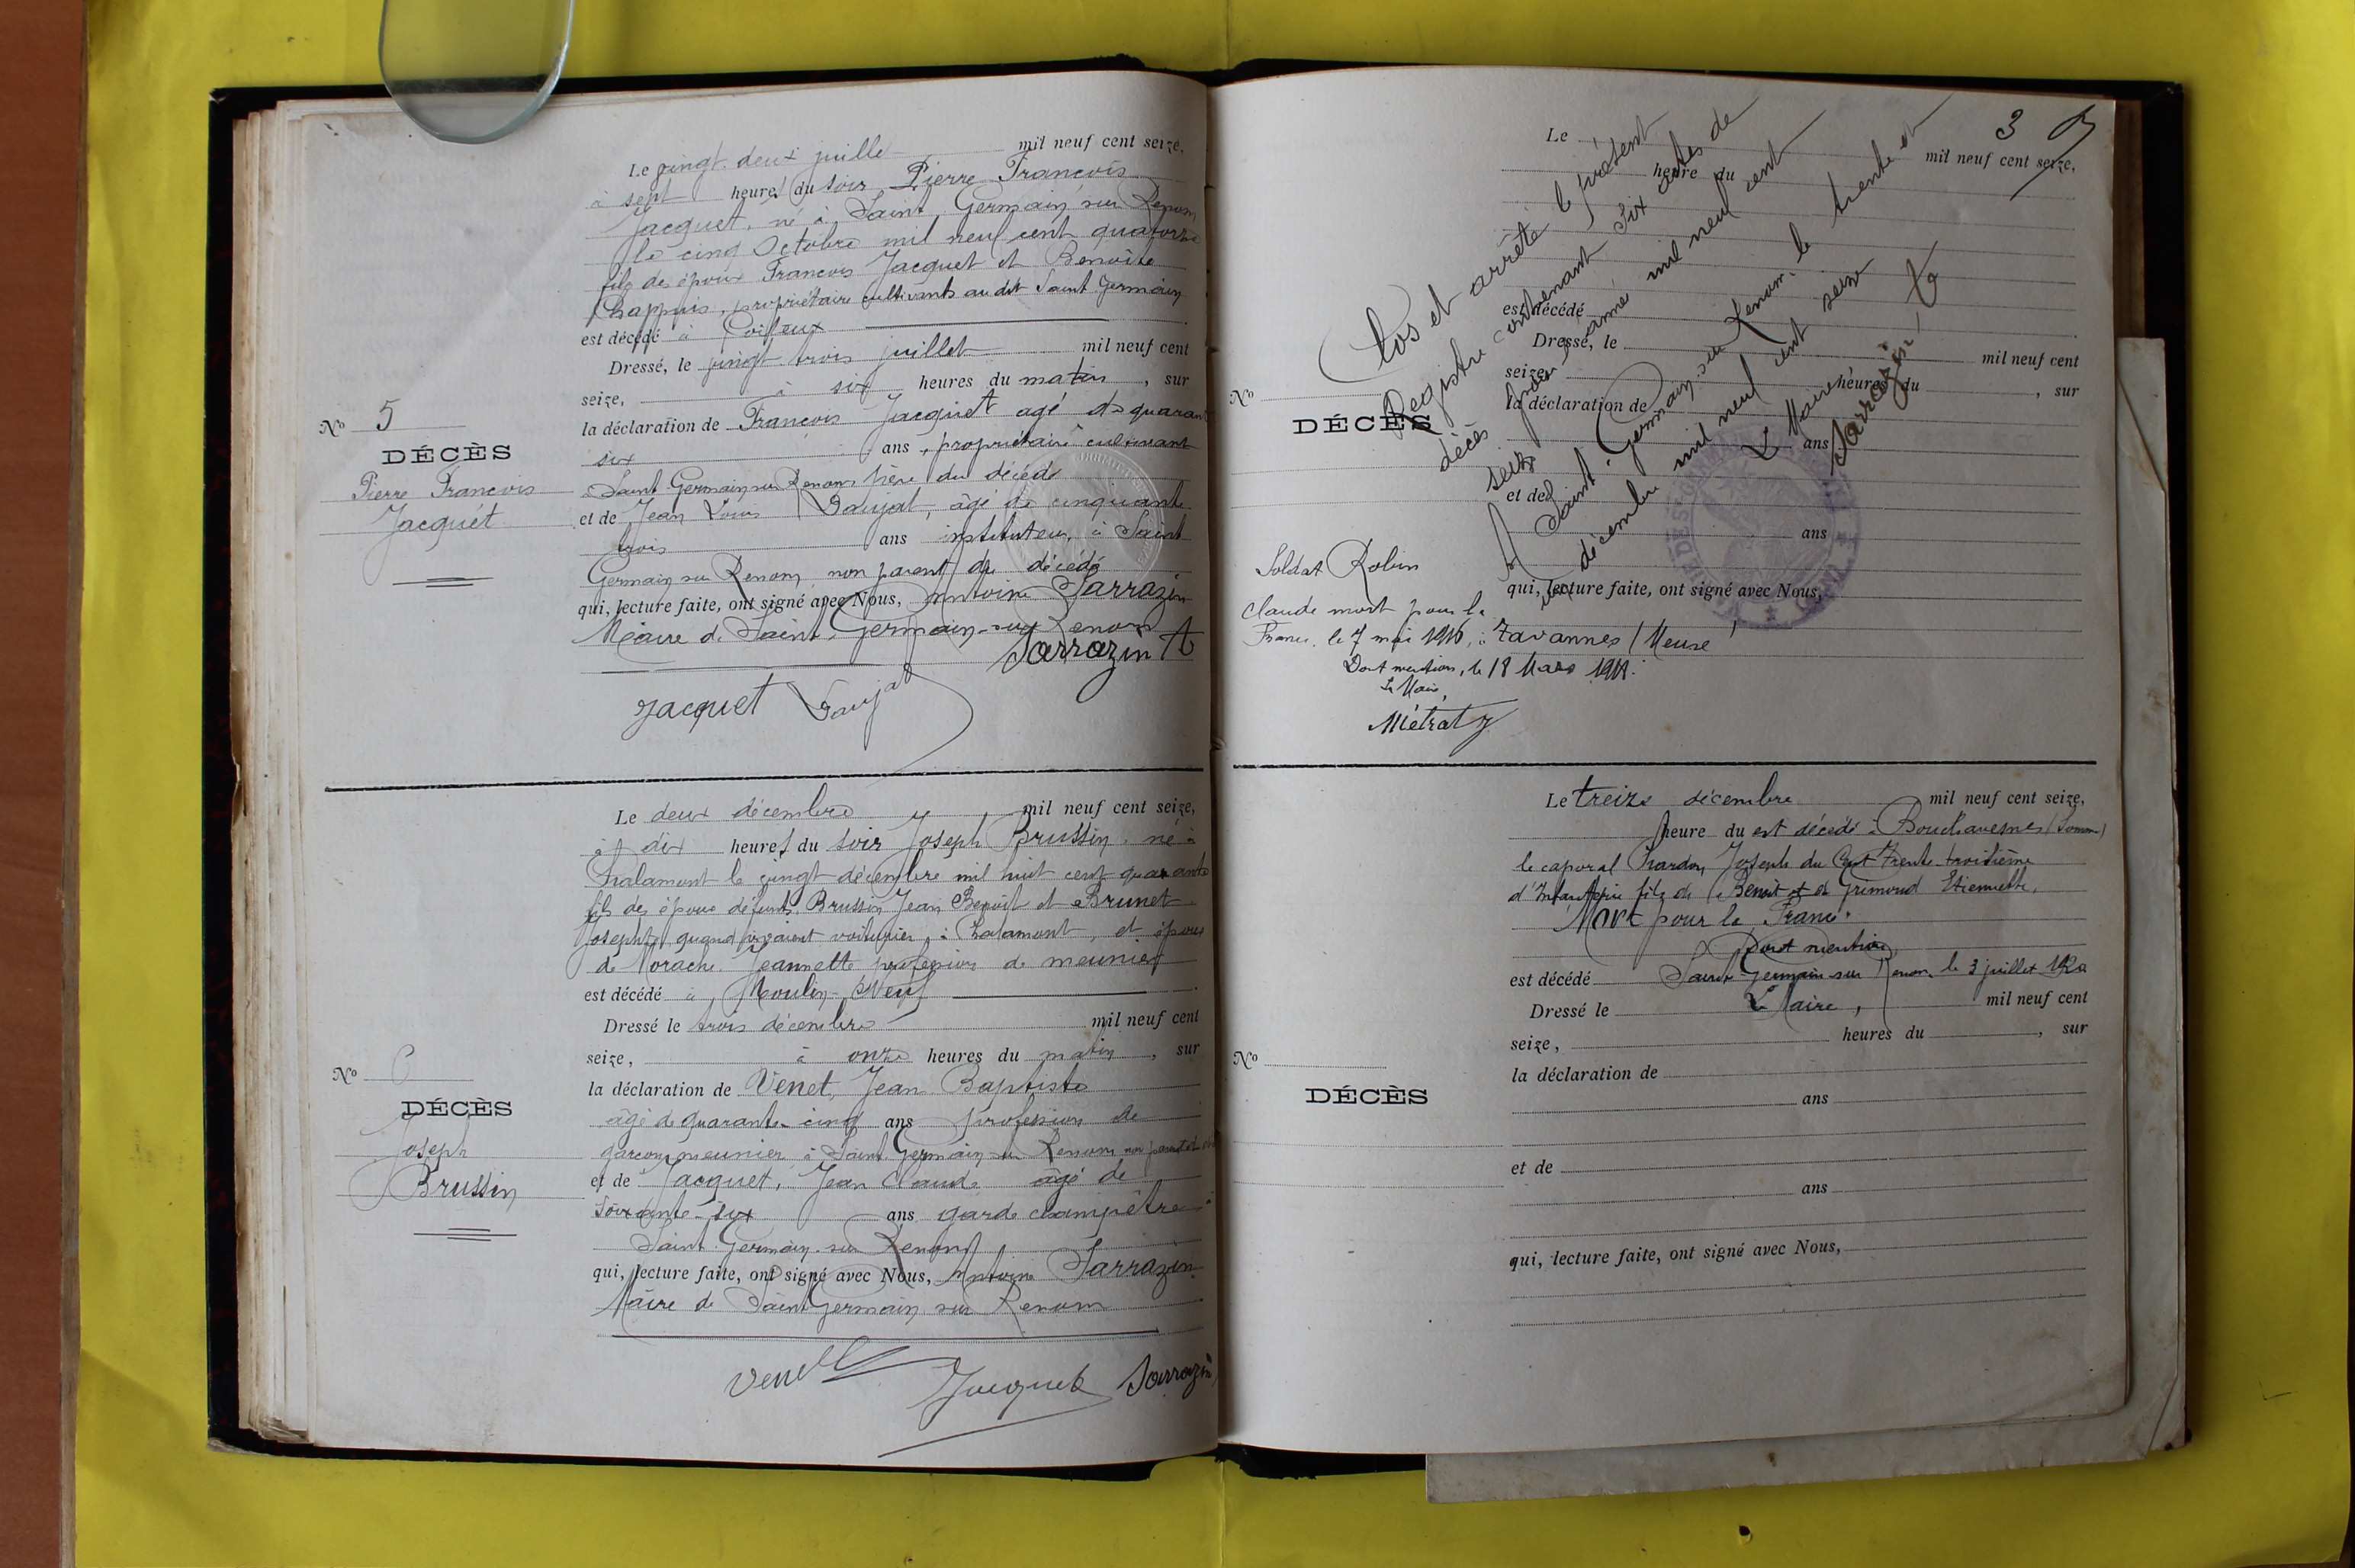 Le vingt deux juillet mil neuf cent seize,
à sept heures du soir Pierre François
Jacquet, né à Saint Germain sur Renom
le cinq Octobre mil neuf cent quatorze
fils des époux François Jacquet et Benoîte
Chappuis, propriétaire cultivants au dit Saint Germain
est décédé à
Dressé, le vingt trois juillet mil neuf cent
seize, à six heures du matin, sur
la déclaration de François Jacquet agé de quarante
six ans, propriétaire cultivant
Saint Germain sur Renom père du décédé
et de Jean Louis Daujat, âgé de cinquante
trois ans instituteur, à Saint
Germain sur Renom non parent du décédé
qui, lecture faite, ont signé avec Nous, Antoine Sarrazin
Maire de Saint-Germain-sur Renom
Sarrazin A
Jacquet Daujat
No 5
DÉCÈS
Pierre François
Jacquet
Le deux décembre mil neuf cent seize,
à dix heures du soir Joseph Brussin né à
Chalamont le vingt décembre mil huit cent quarante
fils des époux défunts Brussin Jean Benoit et Brunet
Josephte quand vivaient voiturier, à Chalamont, et époux
de Morache Jeannette profession de meunier
est décédé à Moulin-Neuf
Dressé le trois décembre mil neuf cent
seize, à onze heures du matin, sur
la déclaration de Venet, Jean Baptiste
âgé de quarante-cinq ans profession de
garçon meunier à Saint Germain sur Renom non parent
et de Jacquet, Jean Claude âgé de
soixante-six ans garde champêtre à
Saint Germain sur Renom
qui, lecture faite, ont signé avec Nous, Antoine Sarrazin
Maire de Saint Germain sur Renom
Venet Jacquet Sarrazin
No 6
DÉCÈS
Joseph
Brussin
3
Le mil neuf cent seize,
heure du
est décédé
Dressé, le mil neuf cent
seize, heures du , sur
la déclaration de
ans
et de
ans
qui, lecture faite, ont signé avec Nous,
No
DÉCÈS
Clos et arrêté le présent
Registre contenant six actes de
décès pour l'année mil neuf cent
seize
A Saint-Germain-sur Renom le trente et
un décembre mil neuf cent seize
Le Maire
Sarrazin A
Soldat Robin
Claude mort pour la
France, le 7 mai 1916, à Tavannes (Meuse)
Dont mention, le 18 Mars
Le Maire,
Métrat
Le treize décembre mil neuf cent seize,
heure du est décédé à Bouchavesnes (Somme)
le caporal Chardon Joseph du Cent Trente troisième
d'Infanterie fils de Benoit et de Grimoud Etiennette.
Mort pour la France.
Dont mention
est décédé Saint Germain sur Renom le 3 juillet 1920
Dressé le Le Maire, mil neuf cent
seize, heures du , sur
la déclaration de
ans
et de
ans
qui, lecture faite, ont signé avec Nous,
No
DÉCÈS